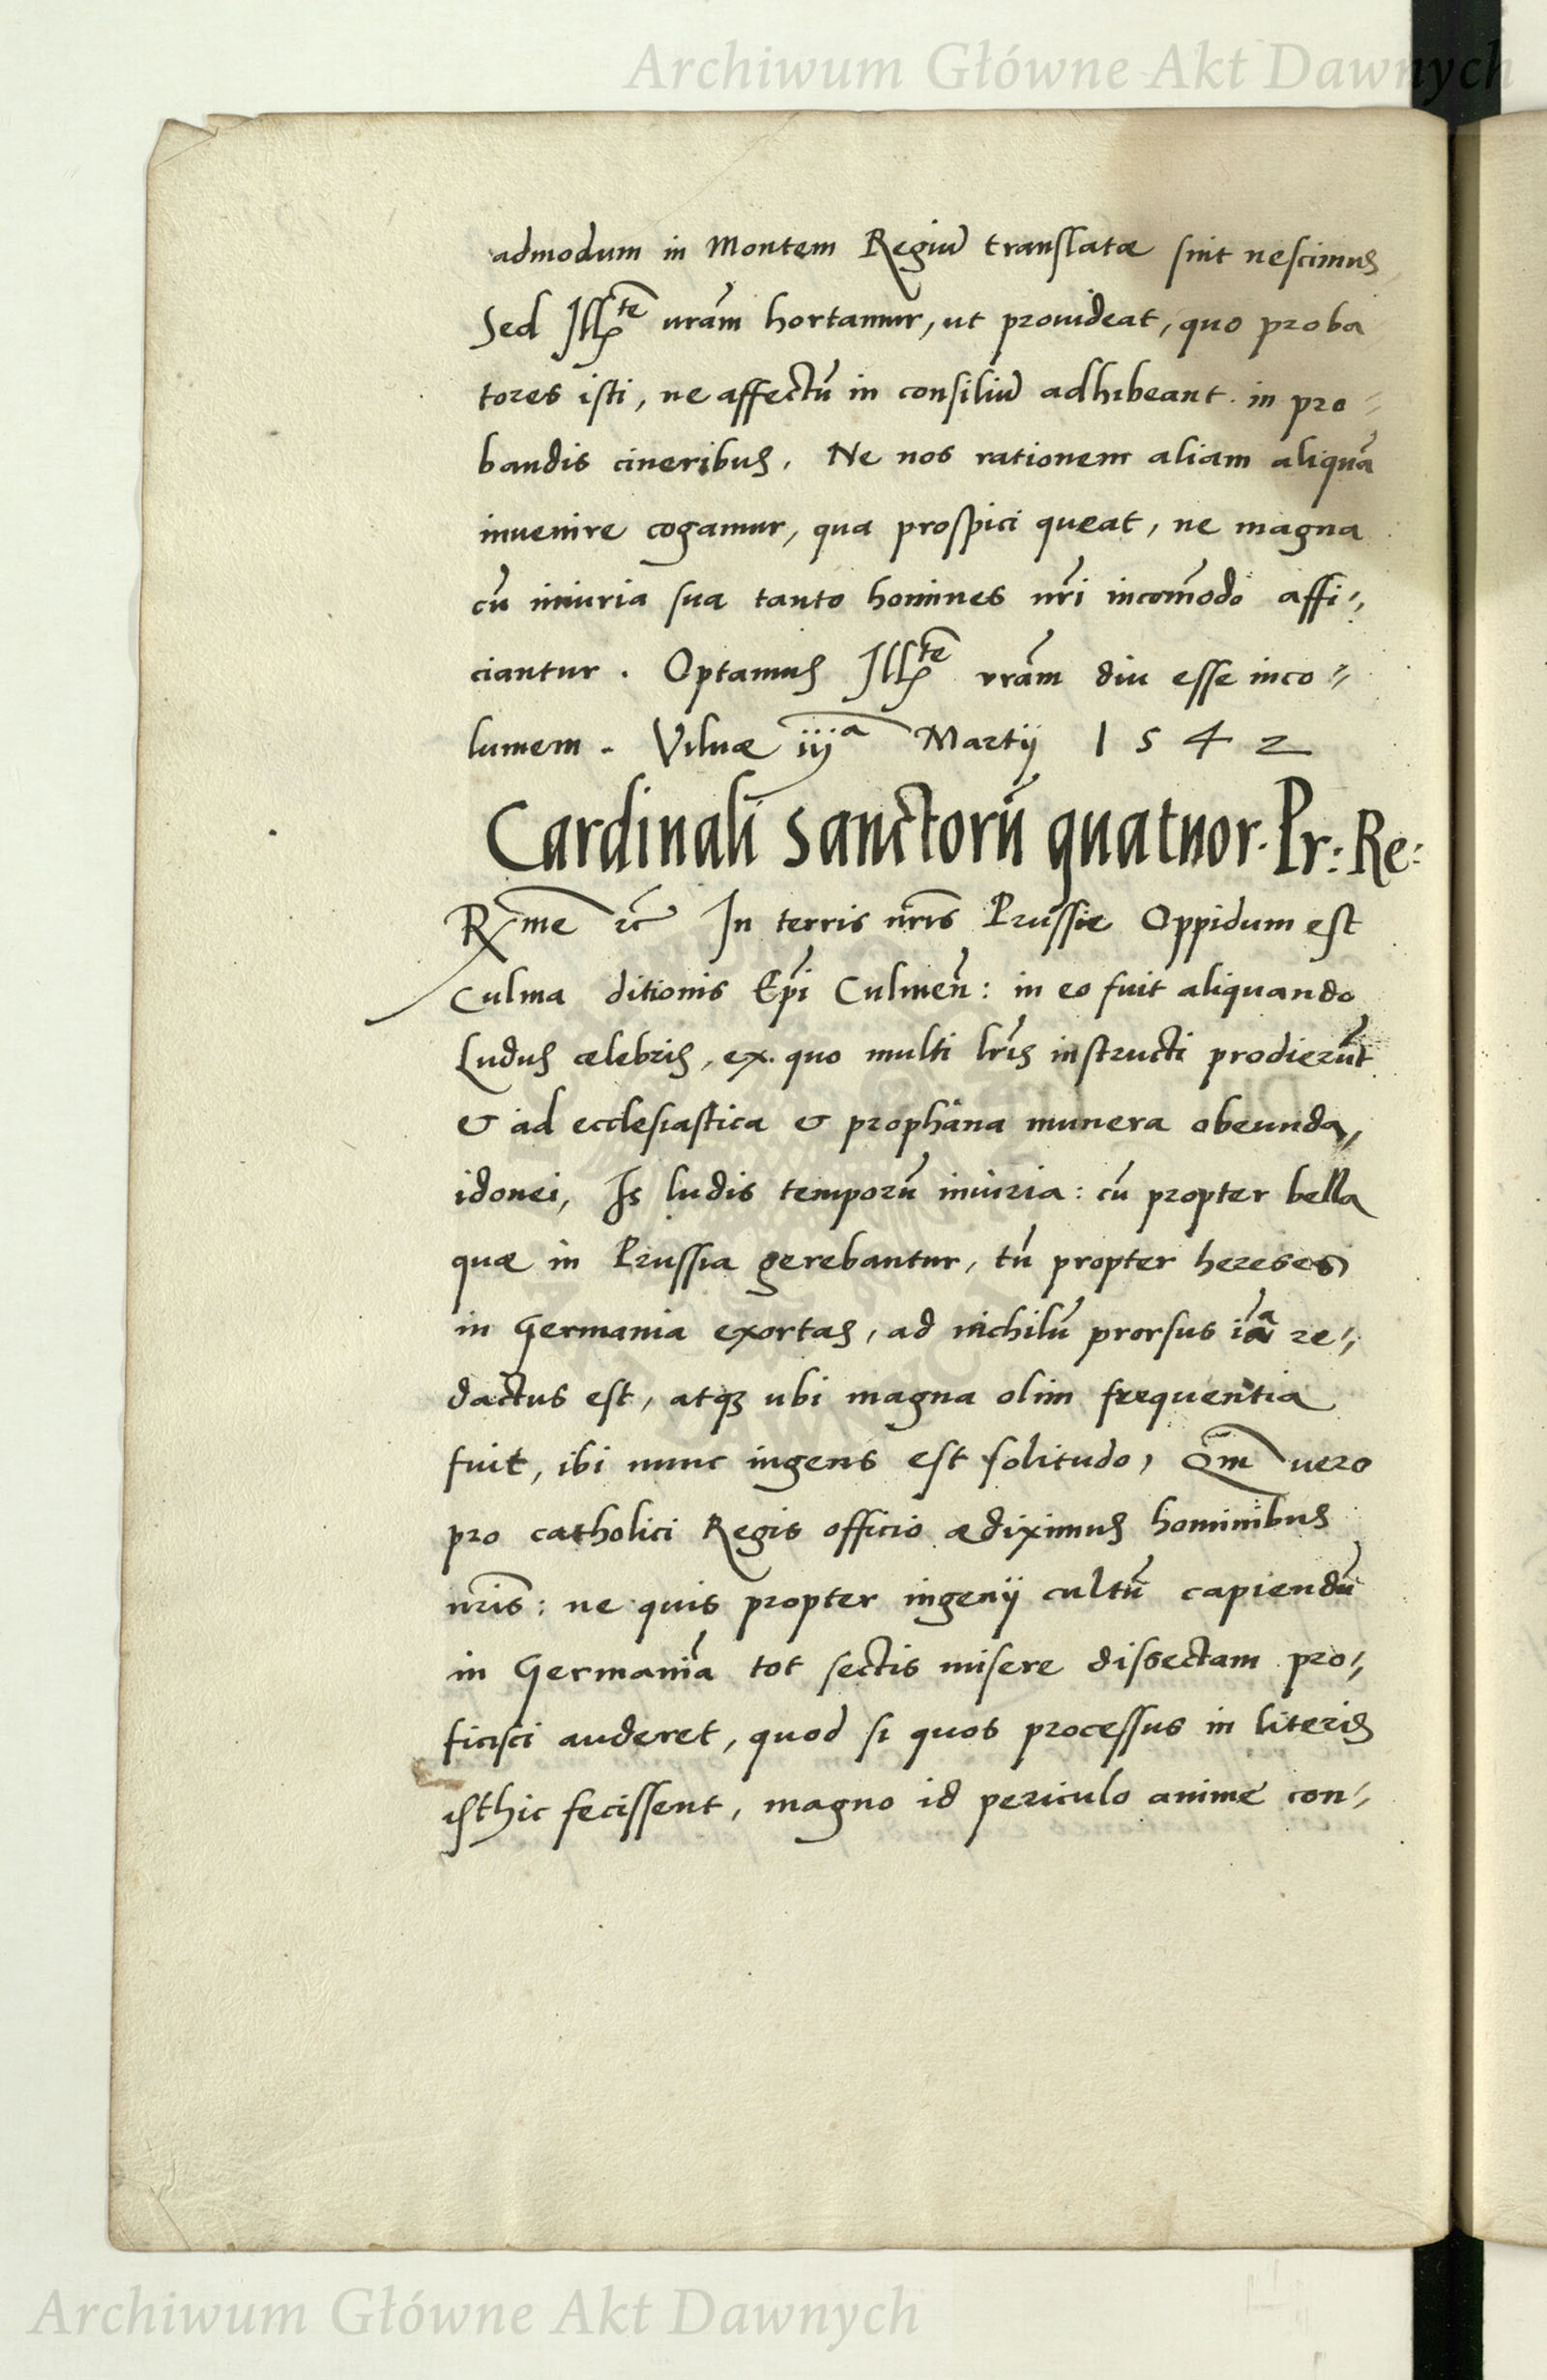 Archiwum Główne Akt Dawnych
admodum in Montem Regiū translatæ sint nescimus
Sed Illᵗᵉ vrām hortamur, ut prouideat, quo proba
tores isti, ne affectū in consiliū adhibeant in pro=
bandis cineribus. Ne nos rationem aliam aliquā
inuenire cogamur, qua prospici queat, ne magna
cū iniuria sua tanto homines nrī incom̄odo affi=
ciantur. Optamus Illᵗᵉ vrām diu esse inco=
lumem. Vilnæ iijᵃ Martij 1542
Cardinali Sanctorū quatuor. Pr: Re:
Rx̄me rc̄ In terris nrīs Prussie Oppidum est
Culma ditionis Epī Culmeñ: in eo fuit aliquando
Ludus celebris, ex quo multi lrīs instructi prodierūt
& ad ecclesiastica & prophana munera obeunda,
idonei, Is ludis temporū iniuria: cū propter bella
quæ in Prussia gerebantur, tū propter hereses
in Germania exortas, ad nichilū prorsus iā re=
dactus est, atqȝ ubi magna olim frequentia
fuit, ibi nunc ingens est solitudo, Qm̄ uero
pro catholici Regis officio ædiximus hominibus
nrīs: ne quis propter ingenij cultū capiendū
in Germaniā tot sectis misere dissectam pro=
ficisci auderet, quod si quos processus in literis
isthic fecissent, magno id periculo anime con=
Archiwum Główne Akt Dawnych